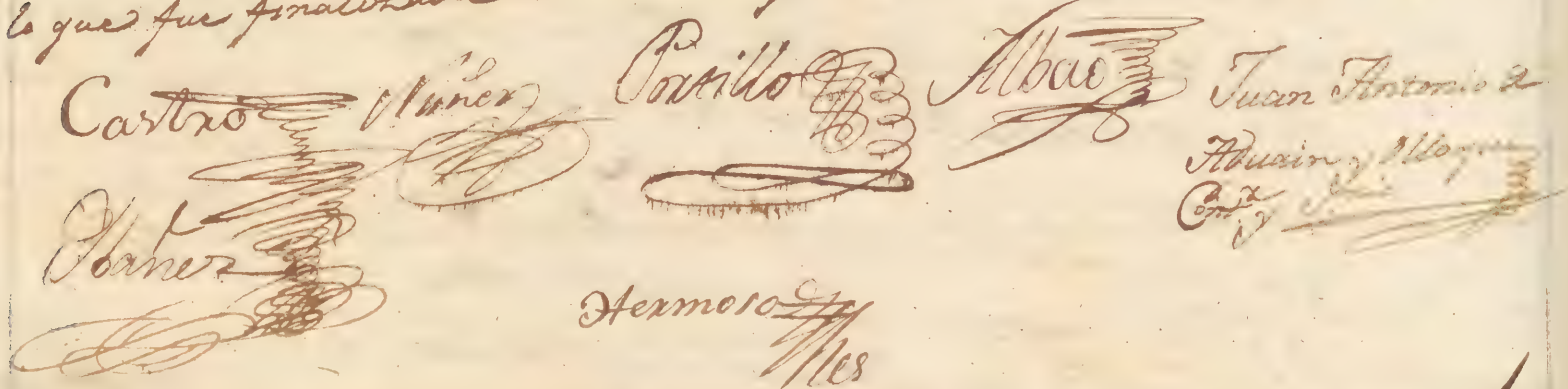 lo que fue finalizad
Castro Nuñez Portillo Albao Juan Antonio de
Aduain y Ulloque
Ybañez
Hermoso